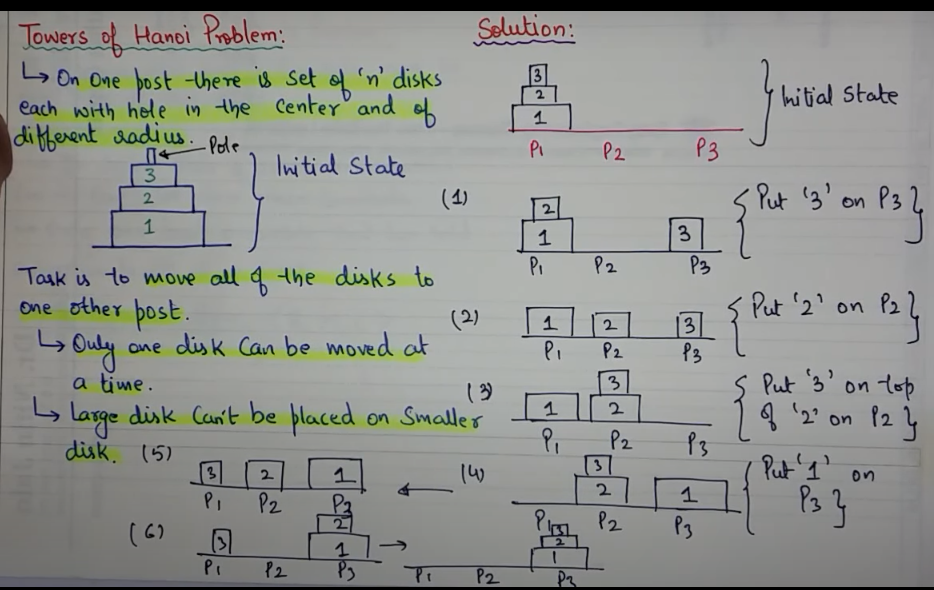 Towers of Hanoi Problem:
↳ On One post there is set of 'n' disks
each with hole in the center and of
different radius.
Pole
3
2
1
Initial State
Task is to move all of the disks to
one other post.
↳ Only one disk Can be moved at
a time.
↳ Large disk Can't be placed on Smaller
disk.
Solution:
3
2
1
P1 P2 P3
Initial State
(1)
2
1 3
P1 P2 P3
{Put '3' on P3}
(2)
1 2 3
P1 P2 P3
{Put '2' on P2}
(3)
3
1 2
P1 P2 P3
{Put '3' on top
of '2' on P2}
(4)
3
2 1
P1 P2 P3
{Put '1' on
P3}
(5)
3 2 1
P1 P2 P3
(6)
2
3 1
P1 P2 P3
3
2
1
P1 P2 P3